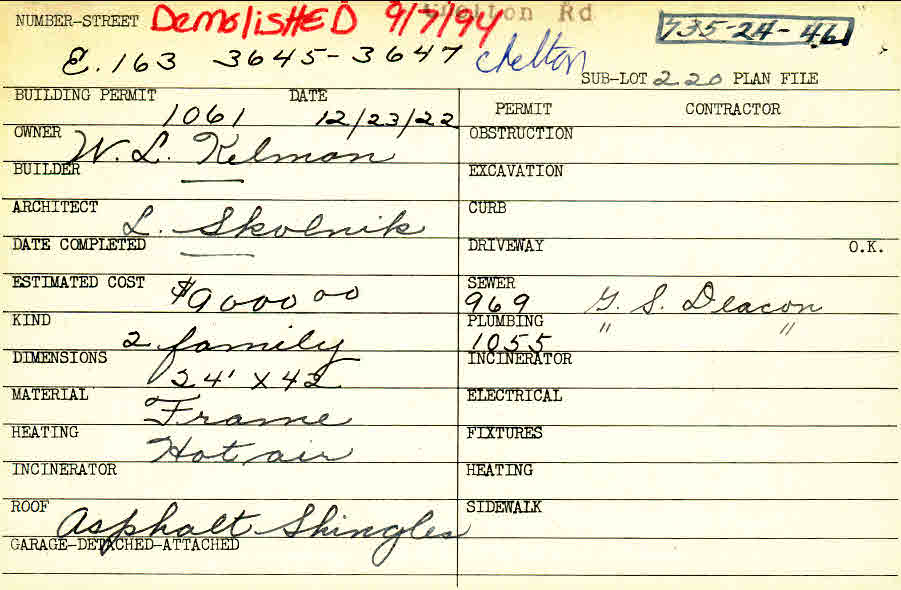 NUMBER-STREET DemolisHED 9/7/94 Chelton Rd 735-24-46
E. 163 3645-3647 Chelton
SUB-LOT 220 PLAN FILE
BUILDING PERMIT DATE
1061 12/23/22
OWNER W. L. Kelman
BUILDER —
ARCHITECT L. Skolnik
DATE COMPLETED —
ESTIMATED COST $9000 00
KIND 2 family
DIMENSIONS 24' X 42
MATERIAL Frame
HEATING Hot air
INCINERATOR
ROOF Asphalt Shingles
GARAGE-DETACHED-ATTACHED
PERMIT CONTRACTOR
OBSTRUCTION
EXCAVATION
CURB
DRIVEWAY O.K.
SEWER
969 G. S. Deacon
PLUMBING " "
1055
INCINERATOR
ELECTRICAL
FIXTURES
HEATING
SIDEWALK